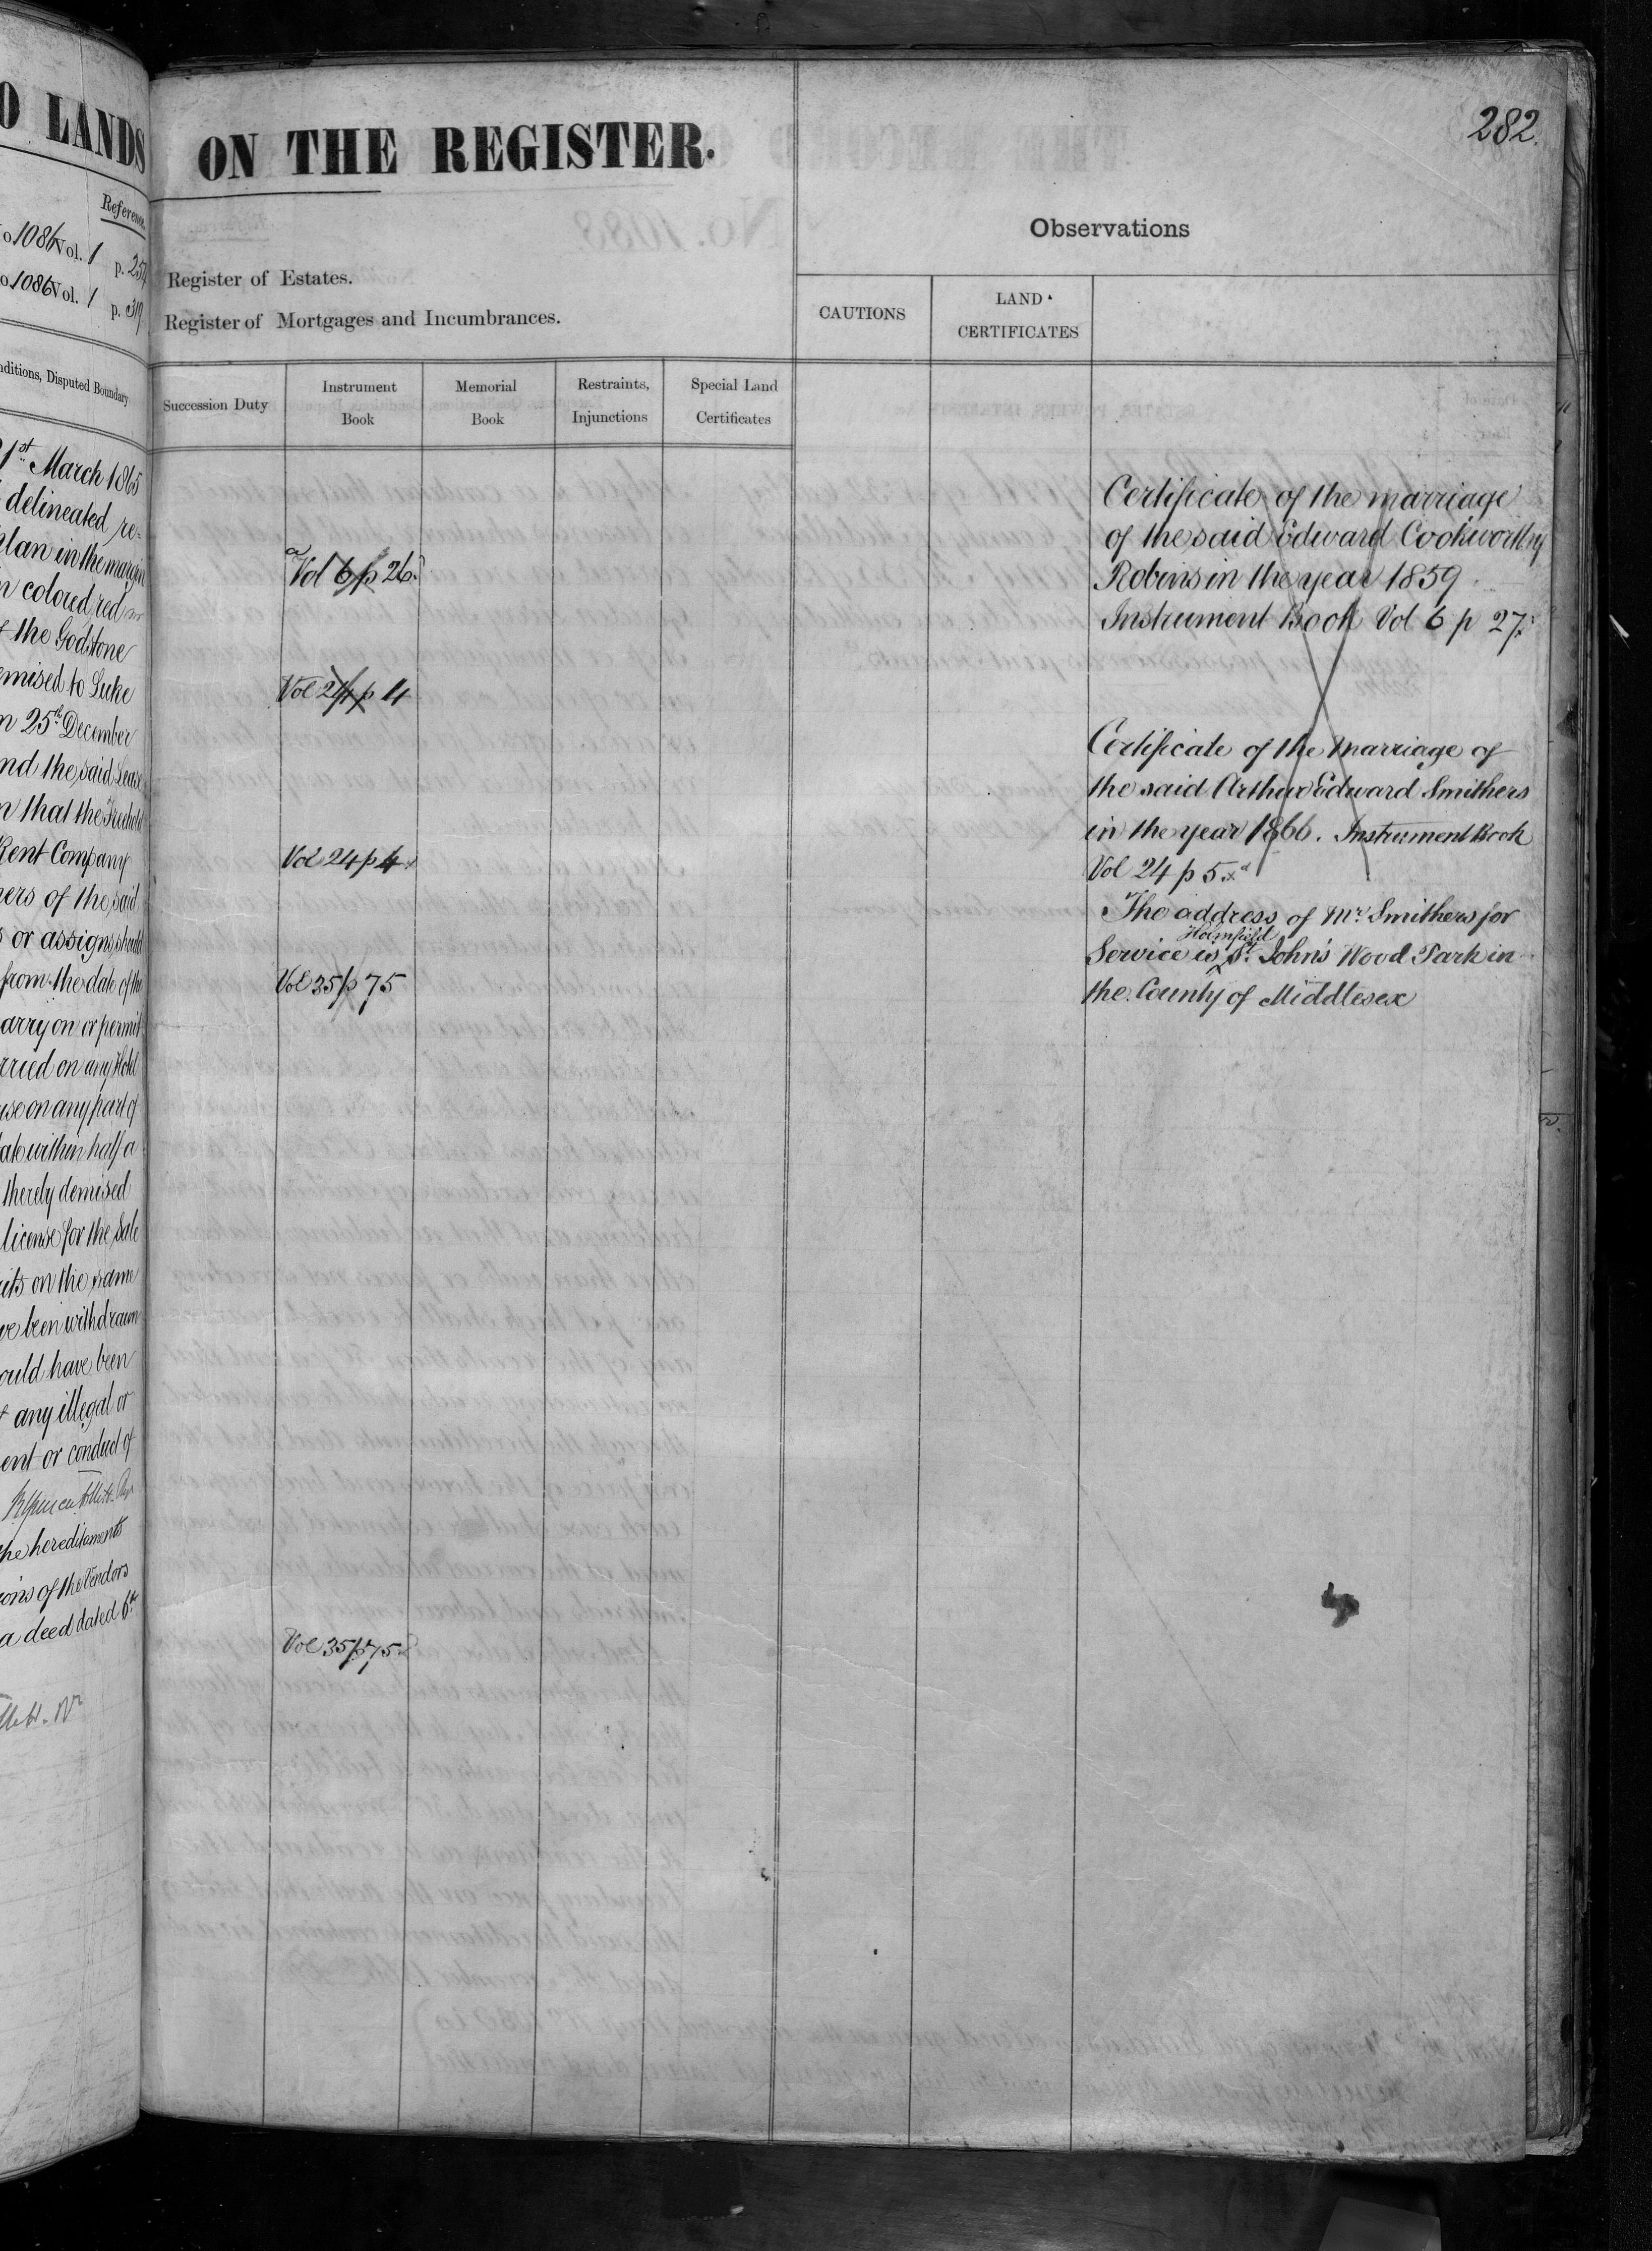 O LANDS
Reference
o 1086 Vol. 1 p. 254
o 1086 Vol. 1 p. 319
nditions, Disputed Boundary
1st March 1865
delineated re=
plan in the margin
n colored red
the Godstone
emised to Luke
n 25th December
nd the said Lease
n that the Freehold
Kent Company
ners of the said
s or assigns should
from the date of the
arry on or permit
rried on any Hotel
use on any part of
ate within half a
thereby demised
license for the sale
its on the same
ve been withdrawn
ould have been
any illegal or
ent or conduct of
the hereditaments
ions of the Vendors
a deed dated 6th
282.
ON THE REGISTER.
Observations
Register of Estates.
Register of Mortgages and Incumbrances.
CAUTIONS
LAND CERTIFICATES
Succession Duty
Instrument Book
Memorial Book
Restraints, Injunctions
Special Land Certificates
Certificate of the marriage
of the said Edward Cookworthy
Robins in the year 1859
Instrument Book Vol 6 p 27.
Vol 6 p 26
Vol 24 p 4
Certificate of the marriage of
the said Arthur Edward Smithers
in the year 1866. Instrument Book
Vol 24 p 5
Vol 24 p 4
The address of Mr. Smithers for
Holmfield
Service is St. John's Wood Park in
the County of Middlesex
Vol 35 p 75
Vol 35 p 75